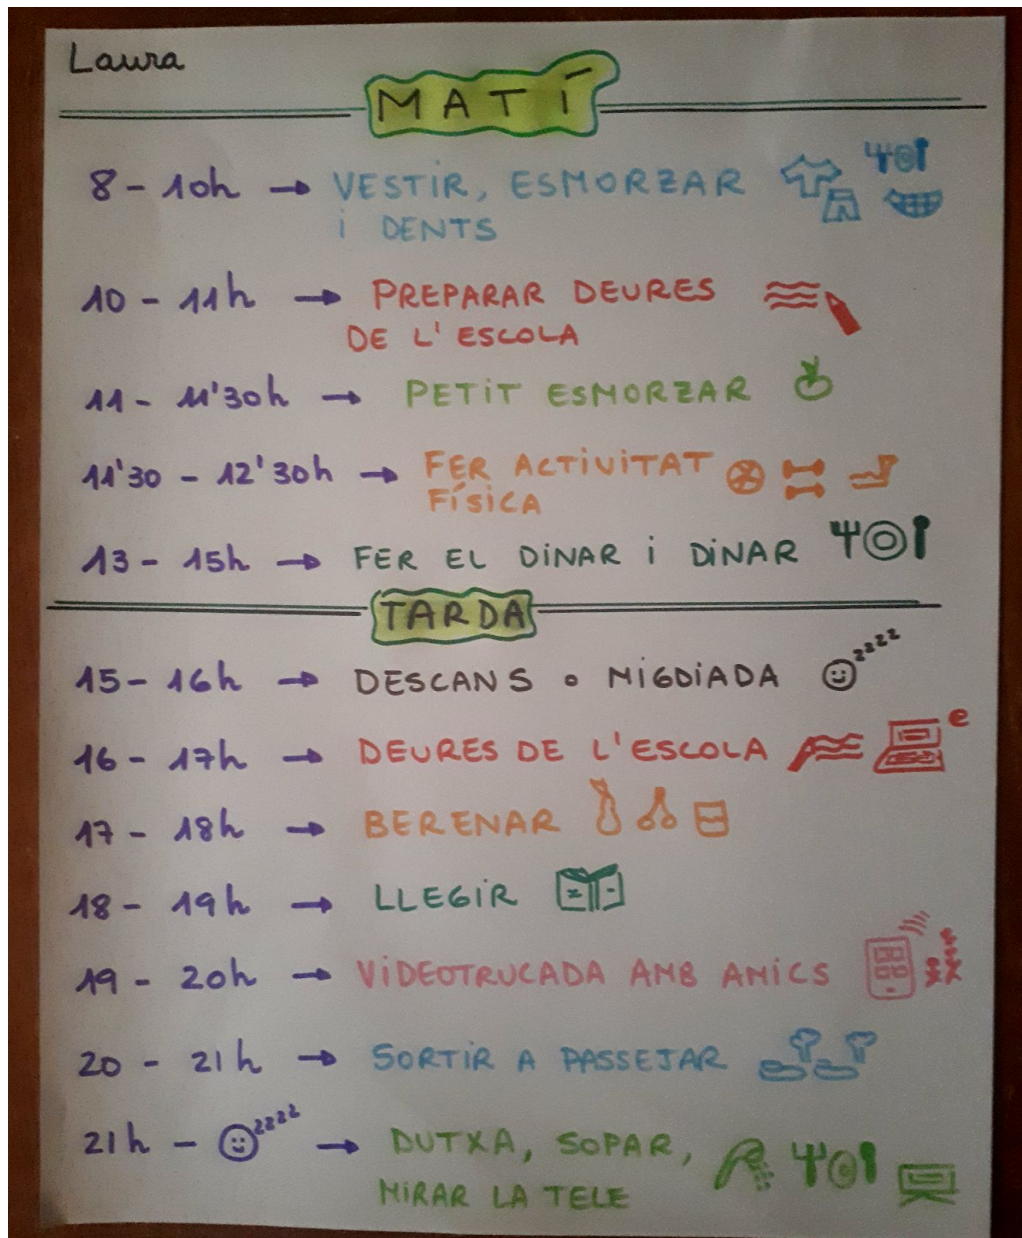 Laura
MATÍ
8 - 10h → VESTIR, ESMORZAR
i DENTS
10 - 11h → PREPARAR DEURES
DE L'ESCOLA
11 - 11'30h → PETIT ESMORZAR
11'30 - 12'30h → FER ACTIVITAT
FÍSICA
13 - 15h → FER EL DINAR i DINAR
TARDA
15 - 16h → DESCANS o MIGDIADA zzzz
16 - 17h → DEURES DE L'ESCOLA e
17 - 18h → BERENAR
18 - 19h → LLEGIR
19 - 20h → VIDEOTRUCADA AMB AMICS
20 - 21h → SORTIR A PASSEJAR
21h - zzzz → DUTXA, SOPAR,
MIRAR LA TELE